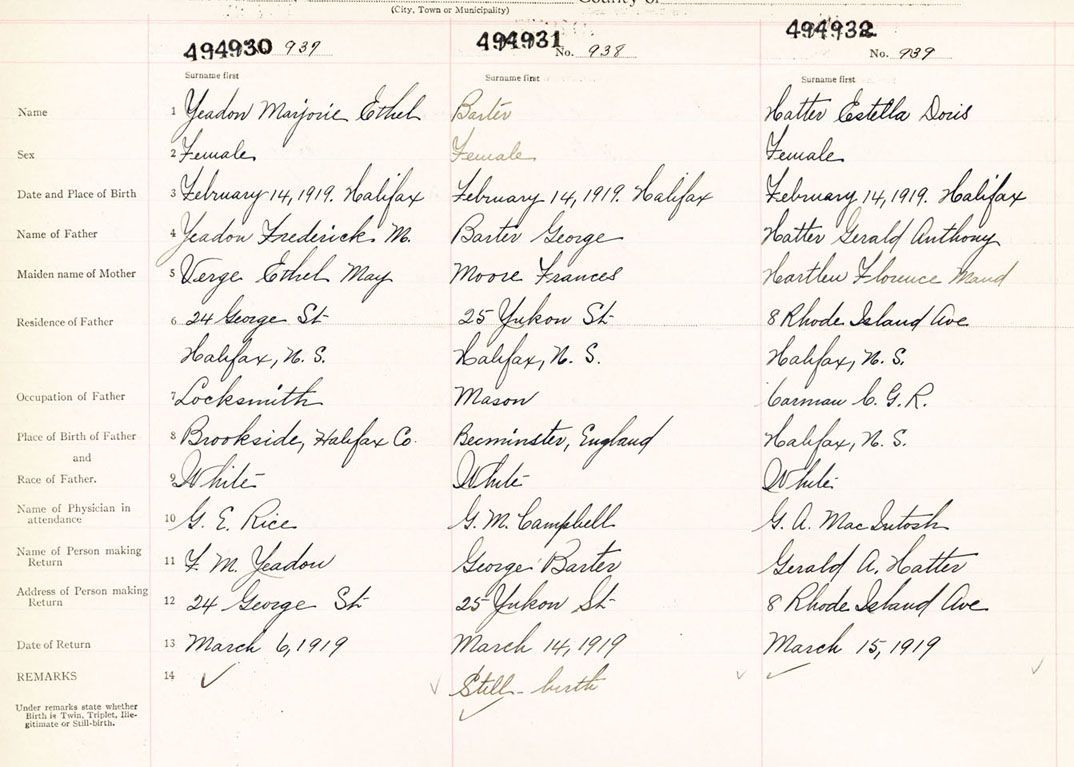 (City, Town or Municipality) County of
494930 937 494931 No. 938 494932 No. 939
Surname first Surname first Surname first
Name 1 Yeadon Marjorie Ethel Barter Hatter Estella Doris
Sex 2 Female Female Female
Date and Place of Birth 3 February 14, 1919. Halifax February 14, 1919. Halifax February 14, 1919. Halifax
Name of Father 4 Yeadon Frederick M. Barter George Hatter Gerald Anthony
Maiden name of Mother 5 Verge Ethel May Moore Frances Hartlen Florence Maud
Residence of Father 6 24 George St 25 Yukon St 8 Rhode Island Ave
Halifax, N. S. Halifax, N. S. Halifax, N. S.
Occupation of Father 7 Locksmith Mason Carman C. G. R.
Place of Birth of Father 8 Brookside, Halifax Co. Beeminster, England Halifax, N. S.
and
Race of Father. 9 White White White
Name of Physician in
attendance 10 G. E. Rice G. M. Campbell G. A. MacIntosh
Name of Person making
Return 11 F. M. Yeadon George Barter Gerald A. Hatter
Address of Person making
Return 12 24 George St 25 Yukon St 8 Rhode Island Ave
Date of Return 13 March 6, 1919 March 14, 1919 March 15, 1919
REMARKS 14 Still-birth
Under remarks state whether
Birth is Twin, Triplet, Ille-
gitimate or Still-birth.